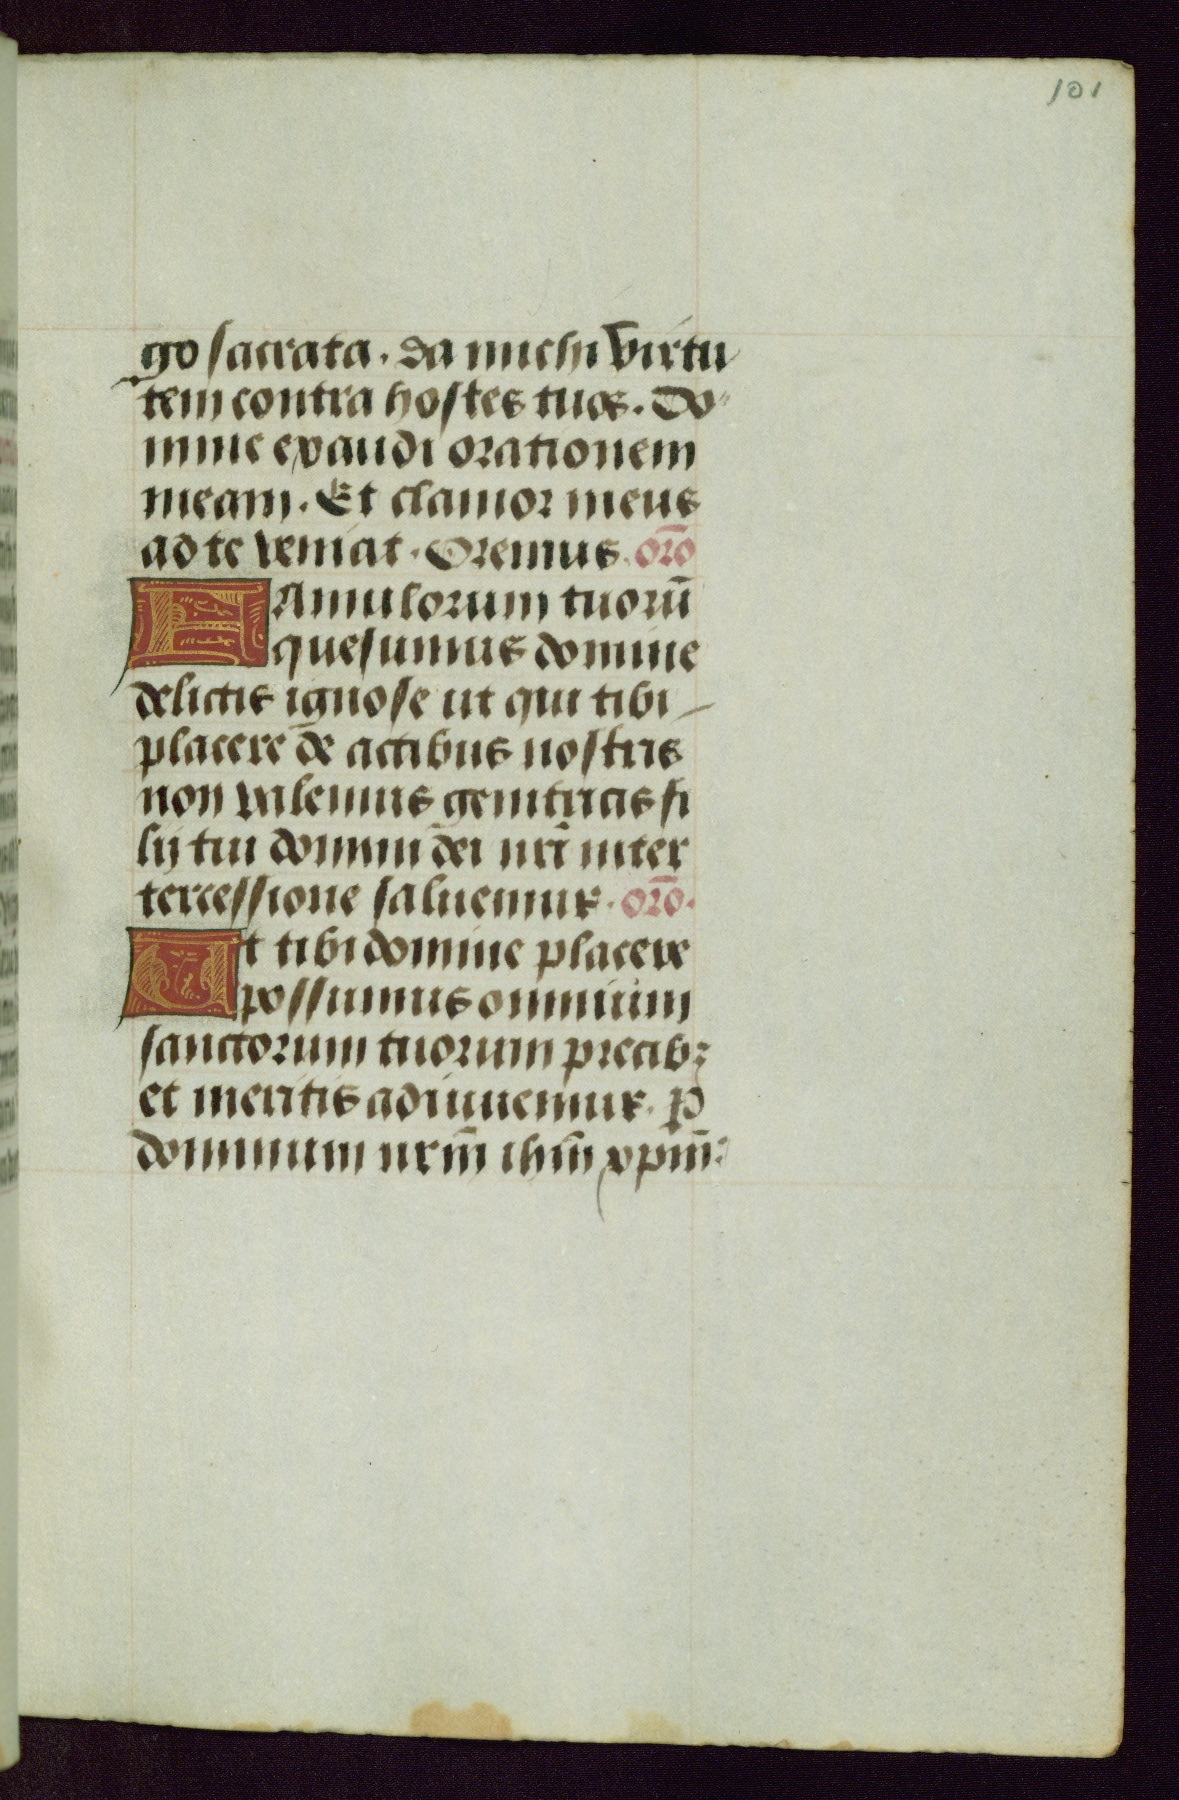 101
go sacrata. da michi virtu
tem contra hostes tuos. Do
mine exaudi orationem
meam. Et clamor meus
ad te veniat. Oremus. oro̅
FAmulorum tuoru̅
quesumus domine
delictis ignose ut qui tibi
placere de actibus nostris
non valemus genitricis fi
lij tui domini dei nr̅i inter
tercessione saluemur. oro̅.
Ut tibi domine placere
possumus omnium
sanctorum tuorum precib⁊
et meritis adiuuemur. P
dominum nrm̅ ihm̅ xpm̅: